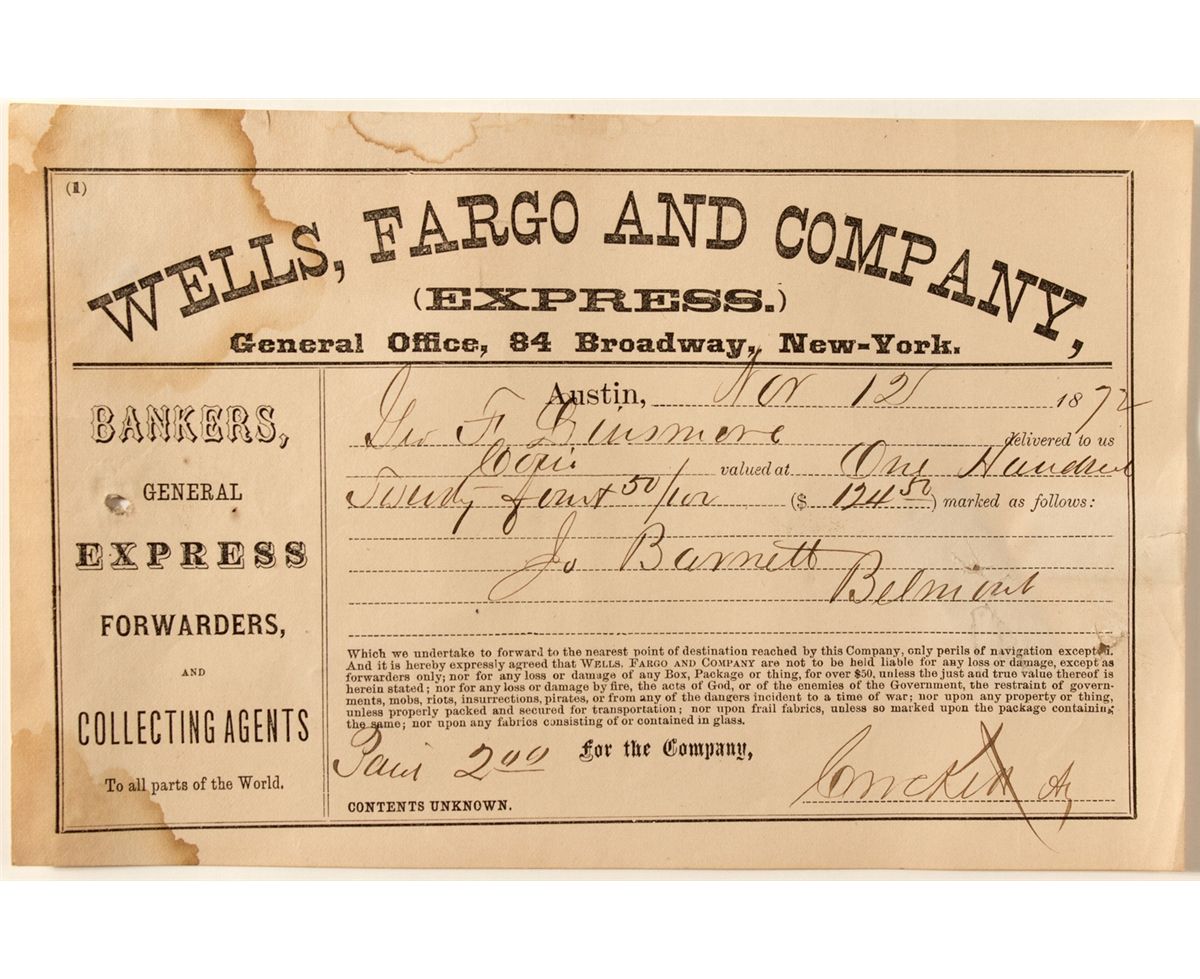 (1)
WELLS, FARGO AND COMPANY,
(EXPRESS.)
General Office, 84 Broadway, New-York.
BANKERS,
GENERAL
EXPRESS
FORWARDERS,
AND
COLLECTING AGENTS
To all parts of the World.
Austin, Nov 12 1872
Geo F. Dinsmore delivered to us
Coin valued at One Hundred
Twenty four 50/100 ($ 124 50) marked as follows:
Jo Barnett
Belmont
Which we undertake to forward to the nearest point of destination reached by this Company, only perils of navigation excepted.
And it is hereby expressly agreed that WELLS, FARGO AND COMPANY are not to be held liable for any loss or damage, except as
forwarders only; nor for any loss or damage of any Box, Package or thing, for over $50, unless the just and true value thereof is
herein stated; nor for any loss or damage by fire, the acts of God, or of the enemies of the Government, the restraint of govern-
ments, mobs, riots, insurrections, pirates, or from any of the dangers incident to a time of war; nor upon any property or thing,
unless properly packed and secured for transportation; nor upon frail fabrics, unless so marked upon the package containing
the same; nor upon any fabrics consisting of or contained in glass.
Paid 2 00 For the Company,
Crockett
CONTENTS UNKNOWN.